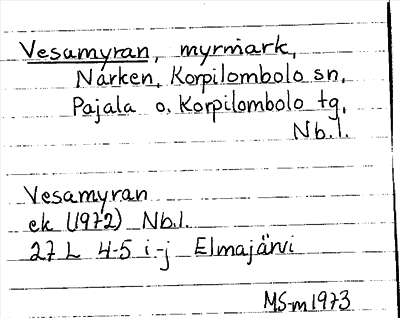 Vesamyran, myrmark,
Narken, Korpilombolo sn,
Pajala o. Korpilombolo tg,
Nb.l.
Vesamyran
ek (1972) Nb.l.
27 L 4-5 i-j Elmajärvi
MS-m 1973